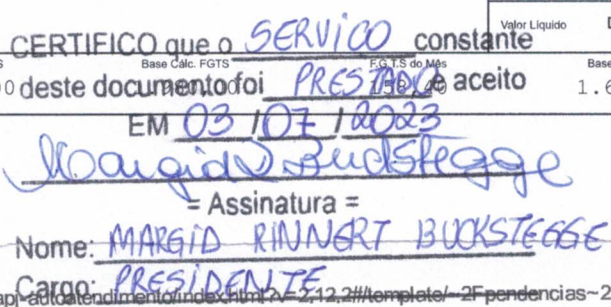 Valor Líquido
CERTIFICO que o SERVICO constante
Base Cálc. FGTS F.G.T.S do Mês Base
deste documento foi PRESTADO e aceito 1.6
EM 03 / 07 / 2023
Margid R Buckstegge
= Assinatura =
Nome: MARGID RINNERT BUCKSTEGGE
Cargo: PRESIDENTE
api-autoatendimento/index.html?v=2.12.2#/template/~2Fpendencias~2